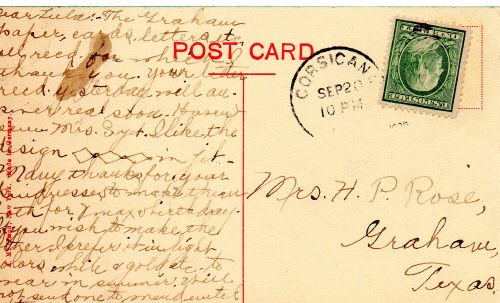 Dear Lula:- The Graham
paper, cards, letters, etc
all rec'd for which I
thank you. Your letter
rec'd yesterday will an-
swer real soon. Haven't
seen Mrs. I like the
design in
Many thanks for your
kindness to make them
with for Xmas or birthday.
If you wish to make the
other I prefer it in light
colors, white & gold etc. to
wear in summer. We'll
not send one to
POST CARD
CORSICANA
SEP 20
10 PM
Mrs. H. P. Rose,
Graham,
Texas.